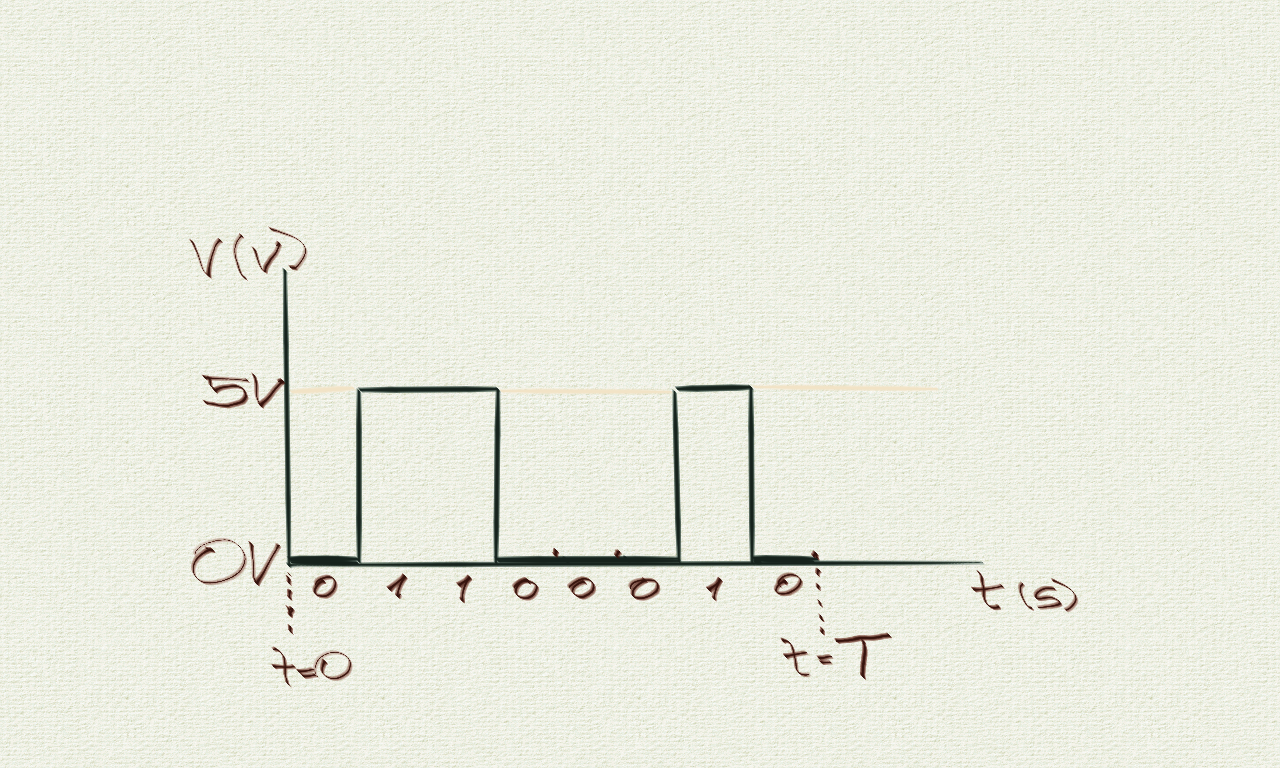 V(V)
5V
0V
0 1 1 0 0 0 1 0
t(s)
t=0
t=T